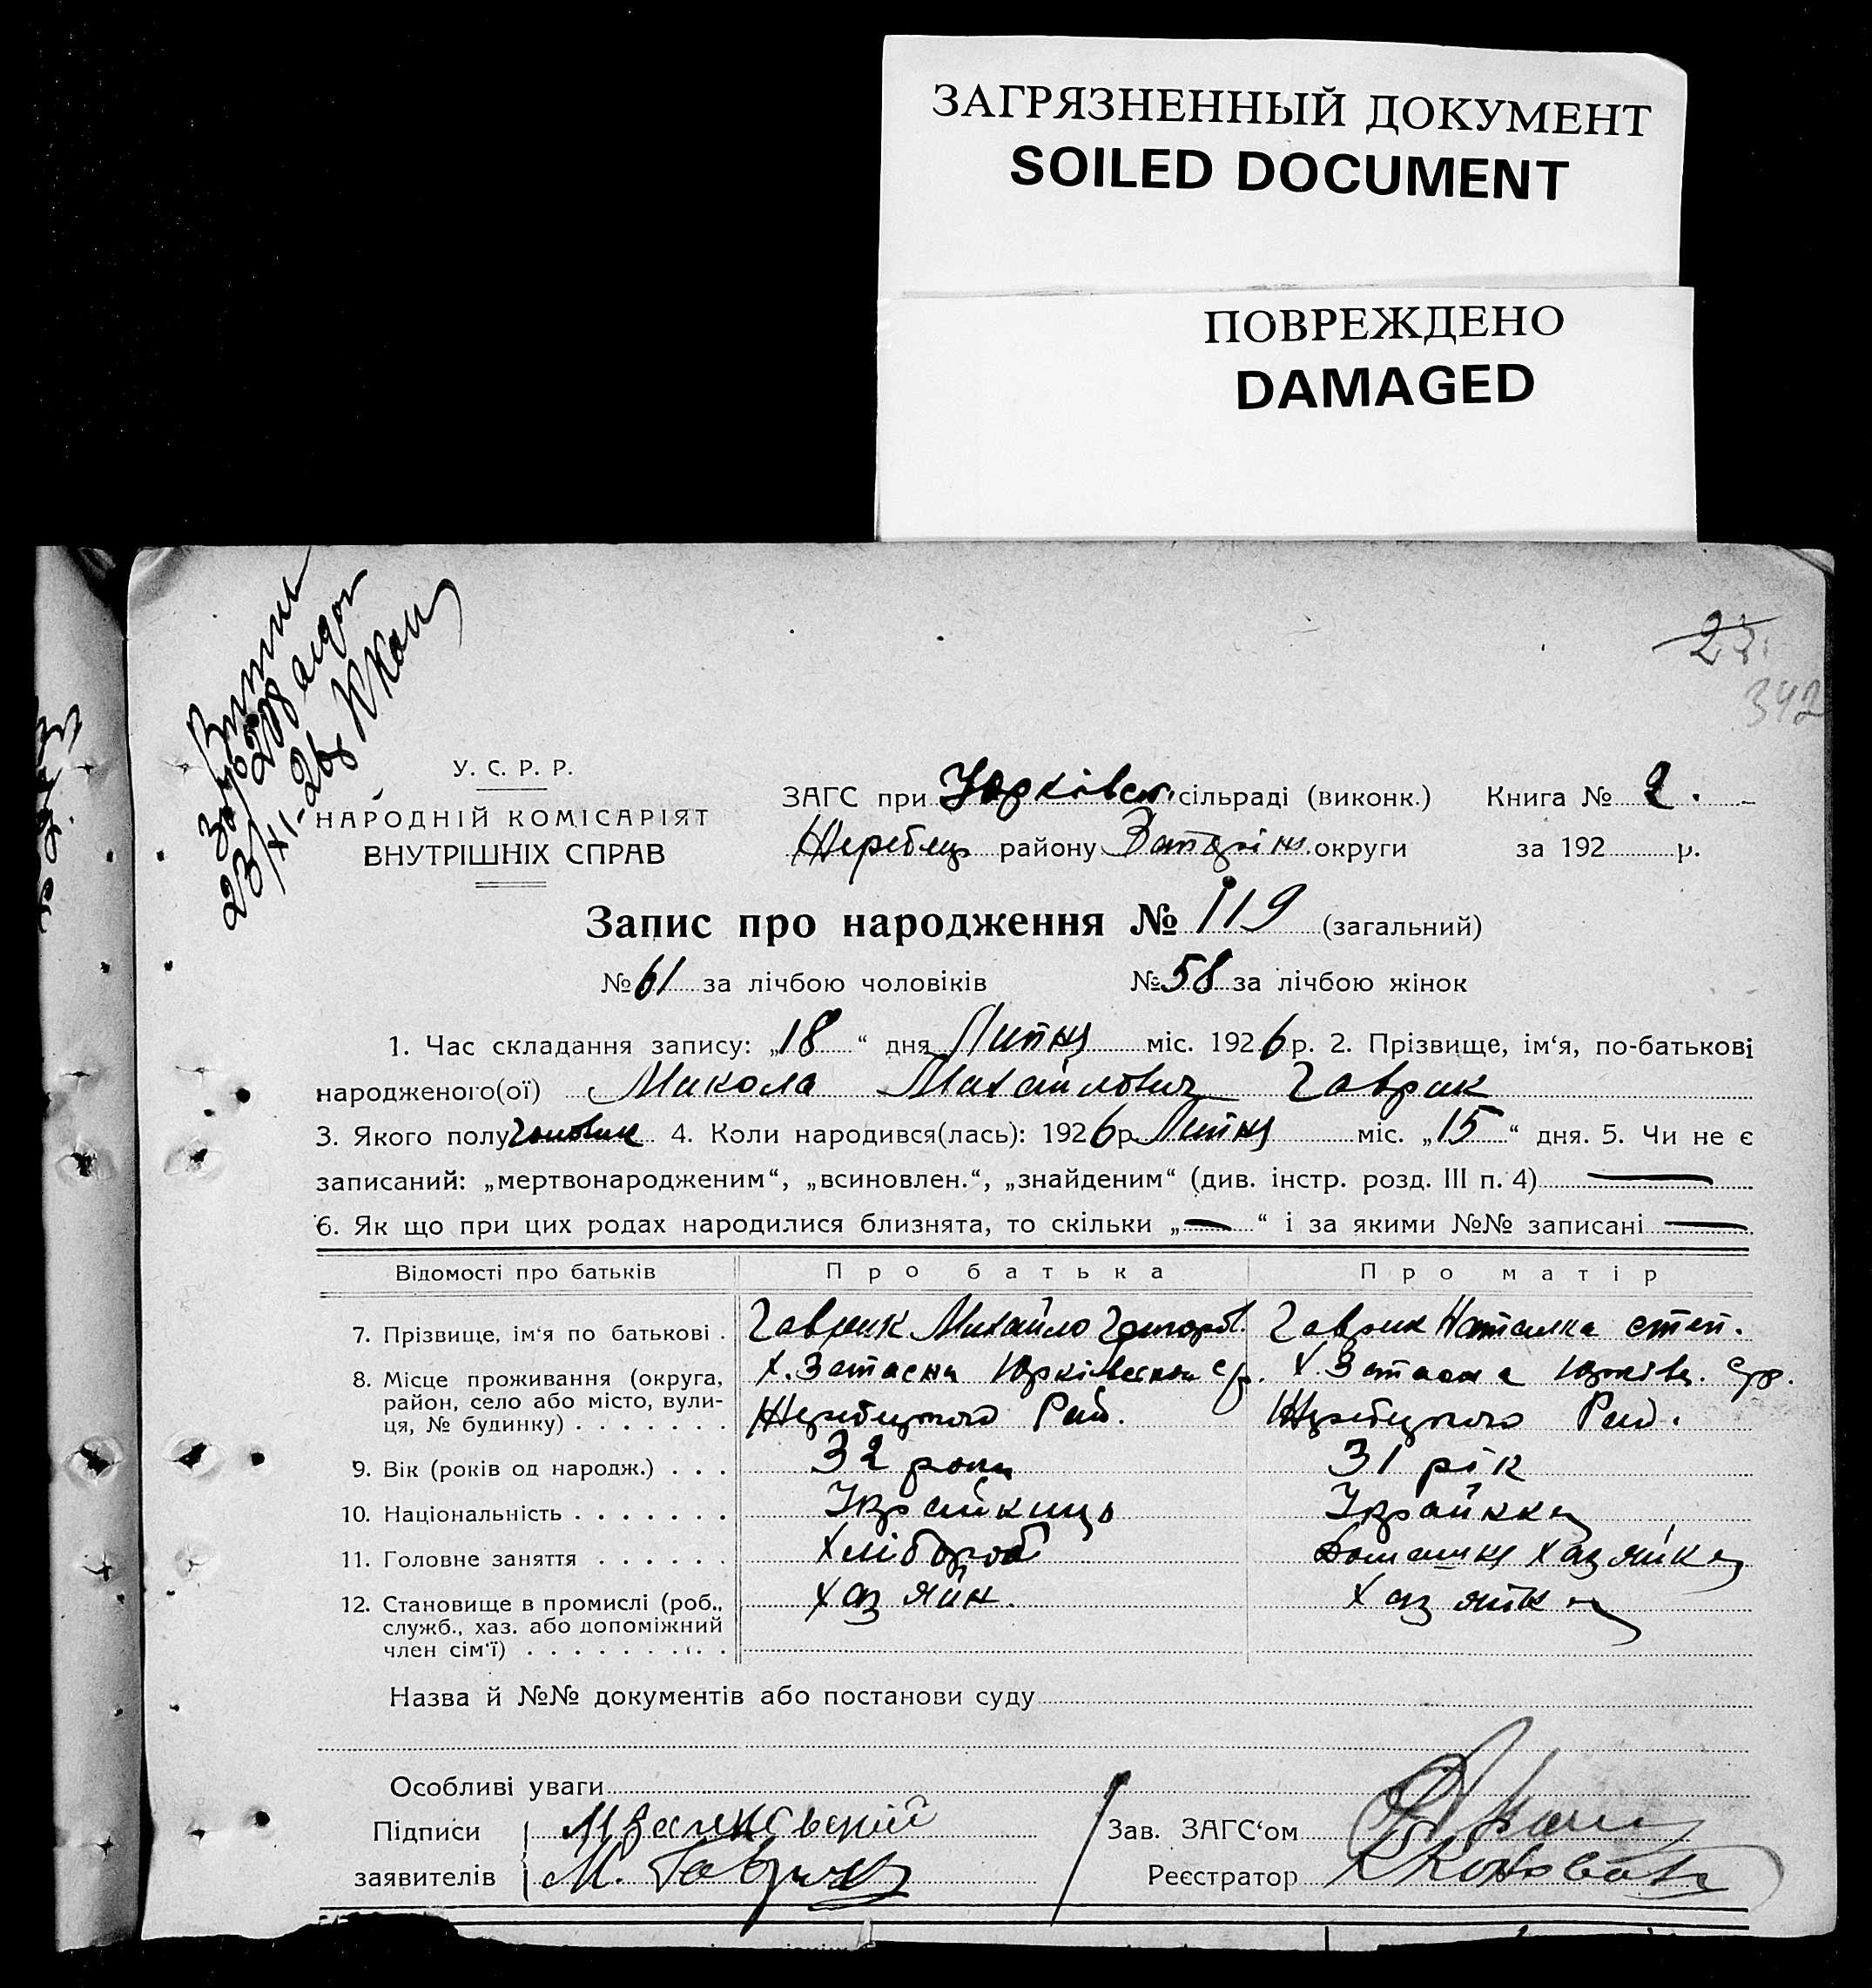 ЗАГРЯЗНЕННЫЙ ДОКУМЕНТ
SOILED DOCUMENT
ПОВРЕЖДЕНО
DAMAGED
342
У. С. Р. Р.
НАРОДНІЙ КОМІСАРІЯТ
ВНУТРІШНІХ СПРАВ
ЗАГС при Юрківск. сільраді (виконк.) Книга № 2.
Жеребец району Запоріж. округи за 192 р.
Запис про народження № 119 (загальний)
№ 61 за лічбою чоловіків № 58 за лічбою жінок
1. Час складання запису: „18“ дня Липня міс. 1926 р. 2. Прізвище, ім‘я, по-батькові
народженого(ої) Микола Михайлович Гаврик
3. Якого полу чоловік 4. Коли народився(лась): 1926 р. Липня міс. „15“ дня. 5. Чи не є
записаний: „мертвонародженим“, „всиновлен.“, „знайденим“ (див. інстр. розд. III п. 4) —
6. Як що при цих родах народилися близнята, то скільки „—“ і за якими №№ записані —
Відомості про батьків Про батька Про матір
7. Прізвище, ім‘я по батькові . Гаврик Михайло Григоров. Гаврик Наталка Степ.
8. Місце проживання (округа, район, село або місто, вули-ця, № будинку) . . . . . . . х. Запасна Юрківської с/р. Жеребецького Рай. х. Запасна Юрківс. с/р. Жеребецького Рай.
9. Вік (років од народж.) . . . 32 роки 31 рік
10. Національність . . . . . . . Українць Українка
11. Головне заняття . . . . . . Хлібороб Домашня хазяйка
12. Становище в промислі (роб., служб., хаз. або допоміжний член сім‘ї) . . . . . . . . . Хазяїн. Хазяйка
Назва й №№ документів або постанови суду
Особливі уваги
Підписи
заявителів М. Гаврик
Зав. ЗАГС‘ом
Реєстратор